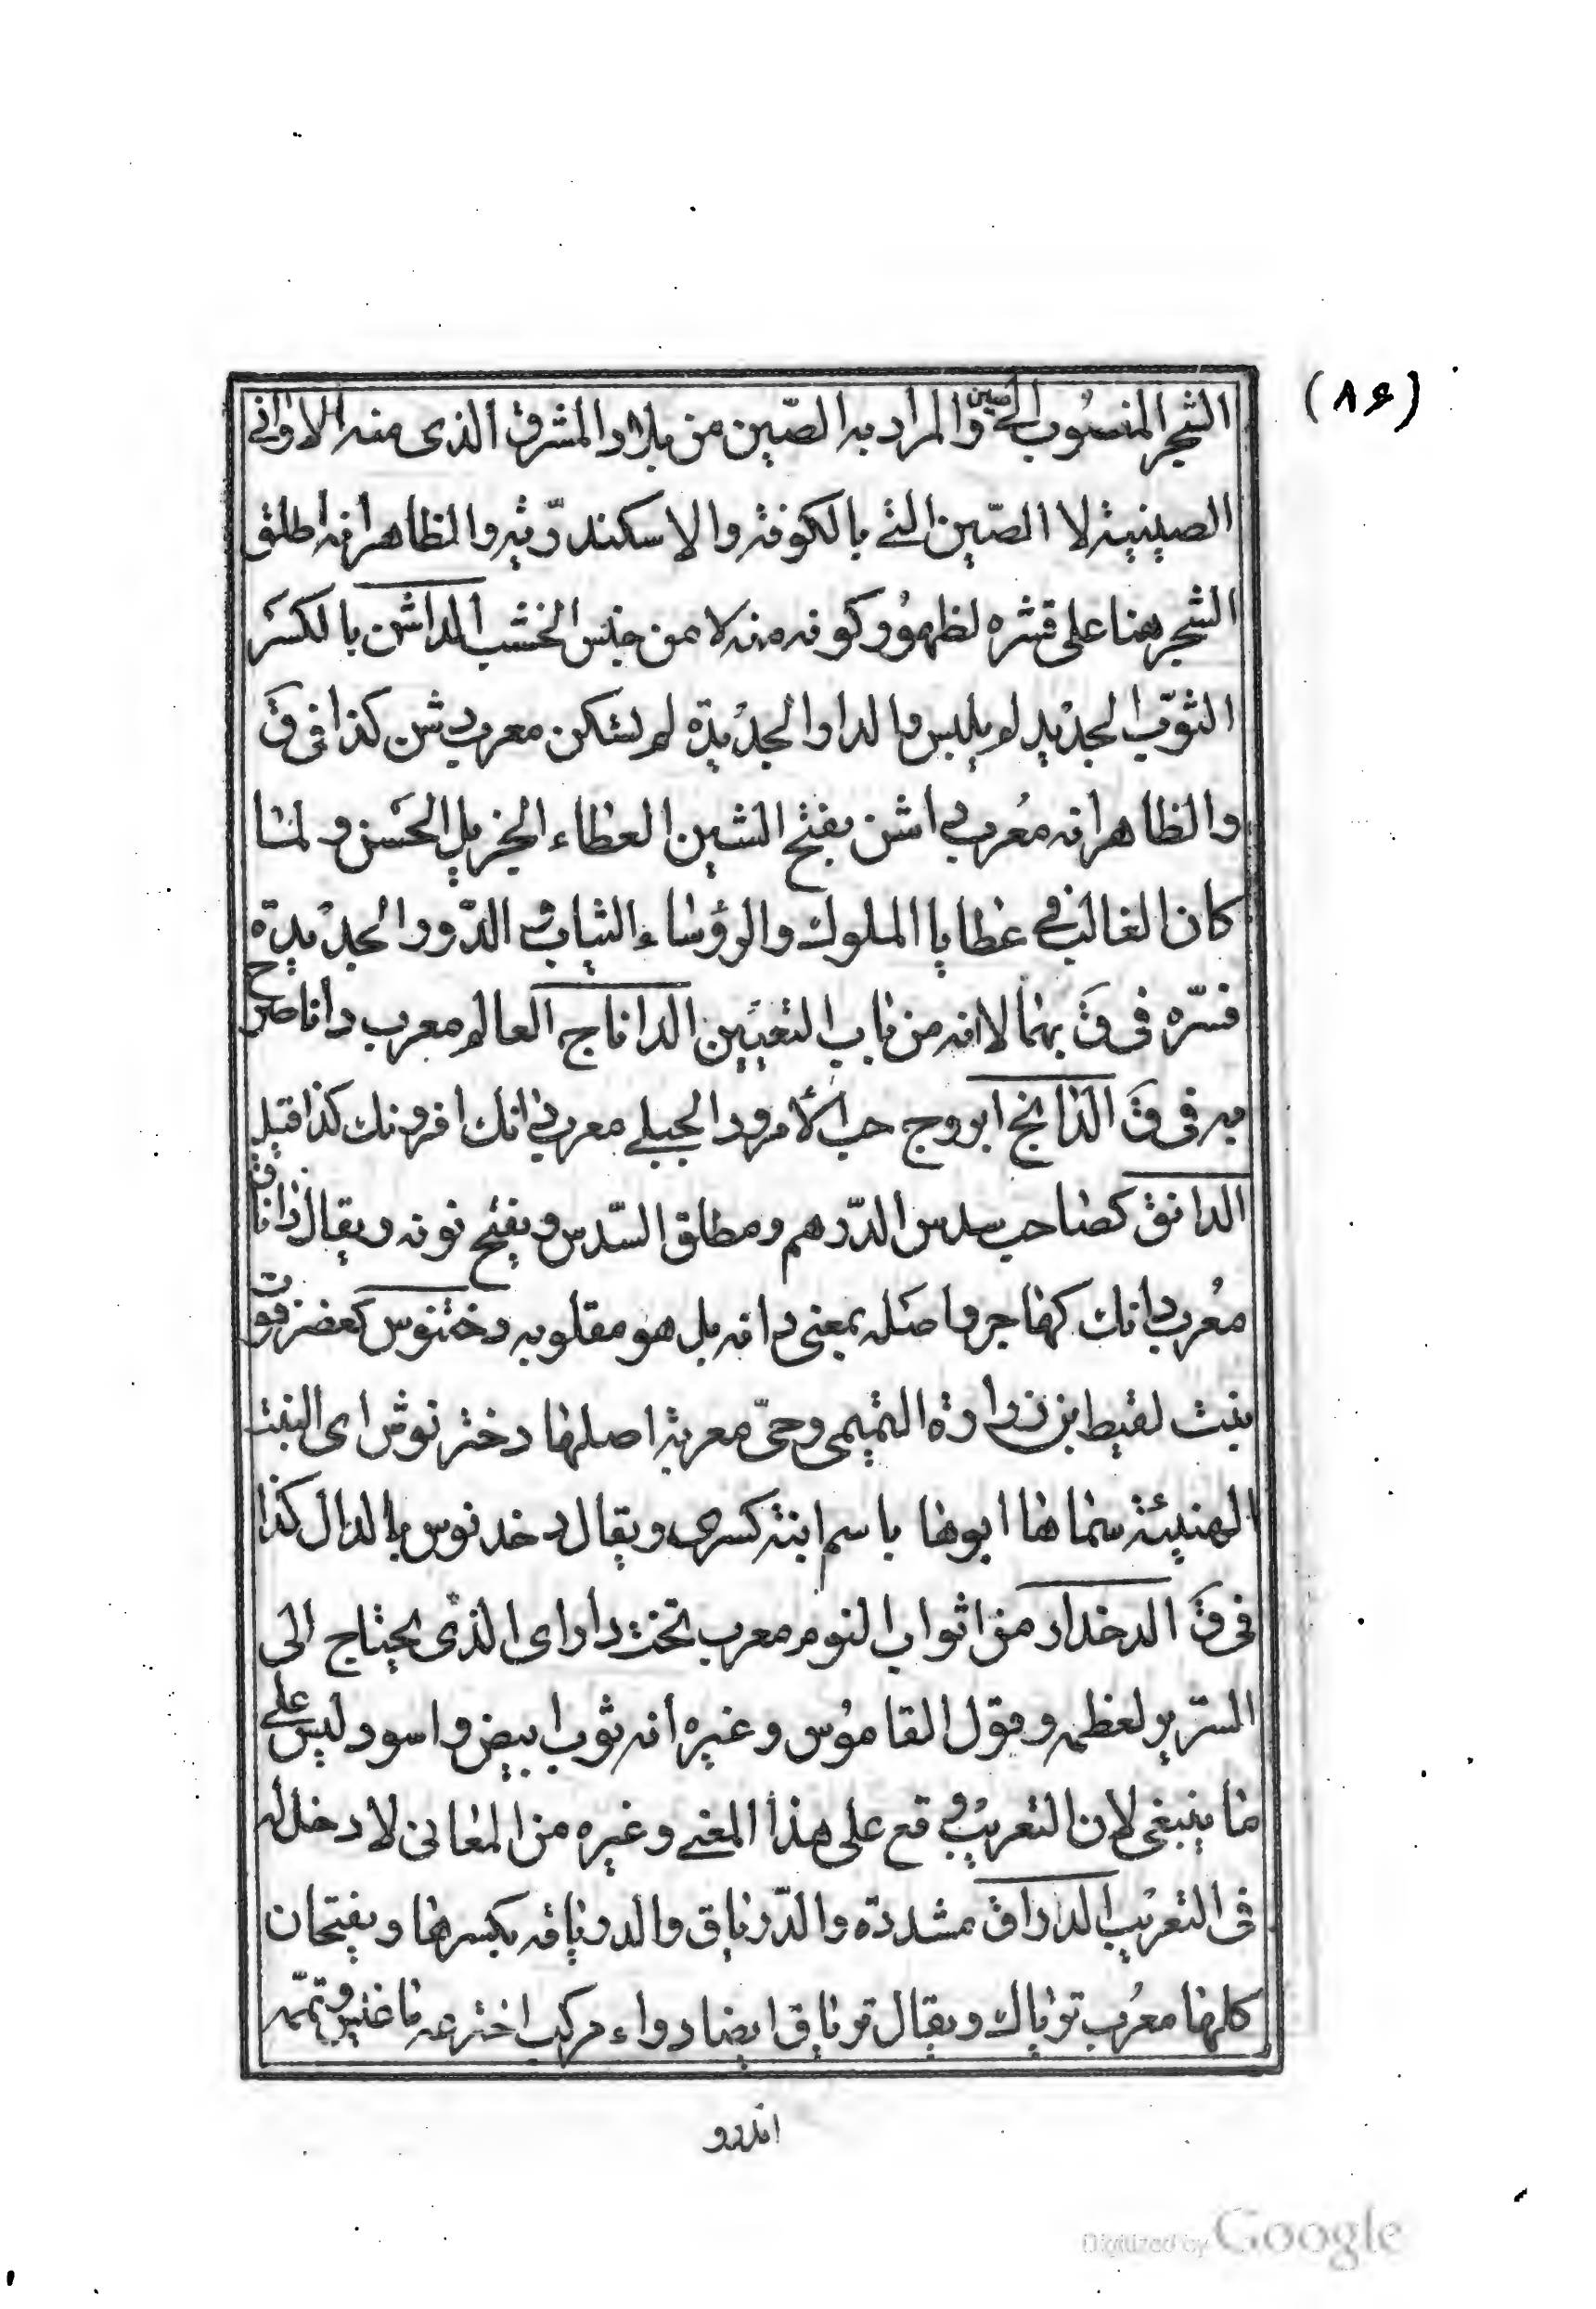 (٨۶)
الشجر المنسوب الى صين والمراد به الصّين من بلاد المشرق الذى منه الاوانى
الصينية لا الصّين التى بالكوفة والاسكندرية والظاهر انه اطلق
الشجر هنا على قشره لظهور كونه منه لا من جنس الخشب الداشن بالكسر
الثوب الجديد لم يلبس والدار الجديدة لم تسكن معرب دشن كذا فى قَ
والظاهر انه معرب داشن بفتح الشين العطاء الجزيل الحسن و لما
كان الغالب فى عطايا الملوك والرؤساء الثياب الدور الجديدة
فسّره فى قَ بهما لا انه من باب التعيين الداناج العالم معرب دانا صرح
به فى قَ الدانج ابروج حب الأمرود الجبلى معرب دانك افرونك كذا قيل
الدانق كصاحب سدس الدّرهم ومطلق السّدس ويفتح نونه ويقال داناق
معرب دانك كهاجر واصله بمعنى دانه بل هو مقلوبه دختنوس كعضرفوت
بنت لقيط بن زرارة التميمى وحىّ معربة اصلها دختر نوش اى البنت
الهنيئة سماها ابوها باسم ابنة كسرى ويقال دخدنوس بالدال كذا
فى قَ الدخدار من اثواب النوم معرب تخت دار اى الذى يحتاج الى
السّرير لعظمه وقول القاموس وغيره انه ثوب ابيض واسود ليس على
ما ينبغى لان التعريب وقع على هذا المعنى وغيره من المعانى لا دخل له
فى التعريب الدراق مشددة والدّرياق والدرياقه بكسرهما ويفتحان
كلها معرب ترياك ويقال ترياق ايضا دواء مركب اخترعه ماغنيس وتمّمه
اندرو
Digitized by Google